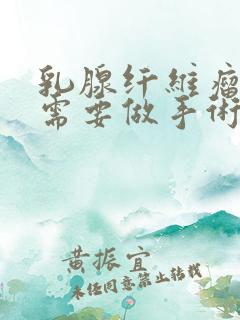 乳腺纤维瘤
需要做手术
黄振宜
未经同意禁止转载